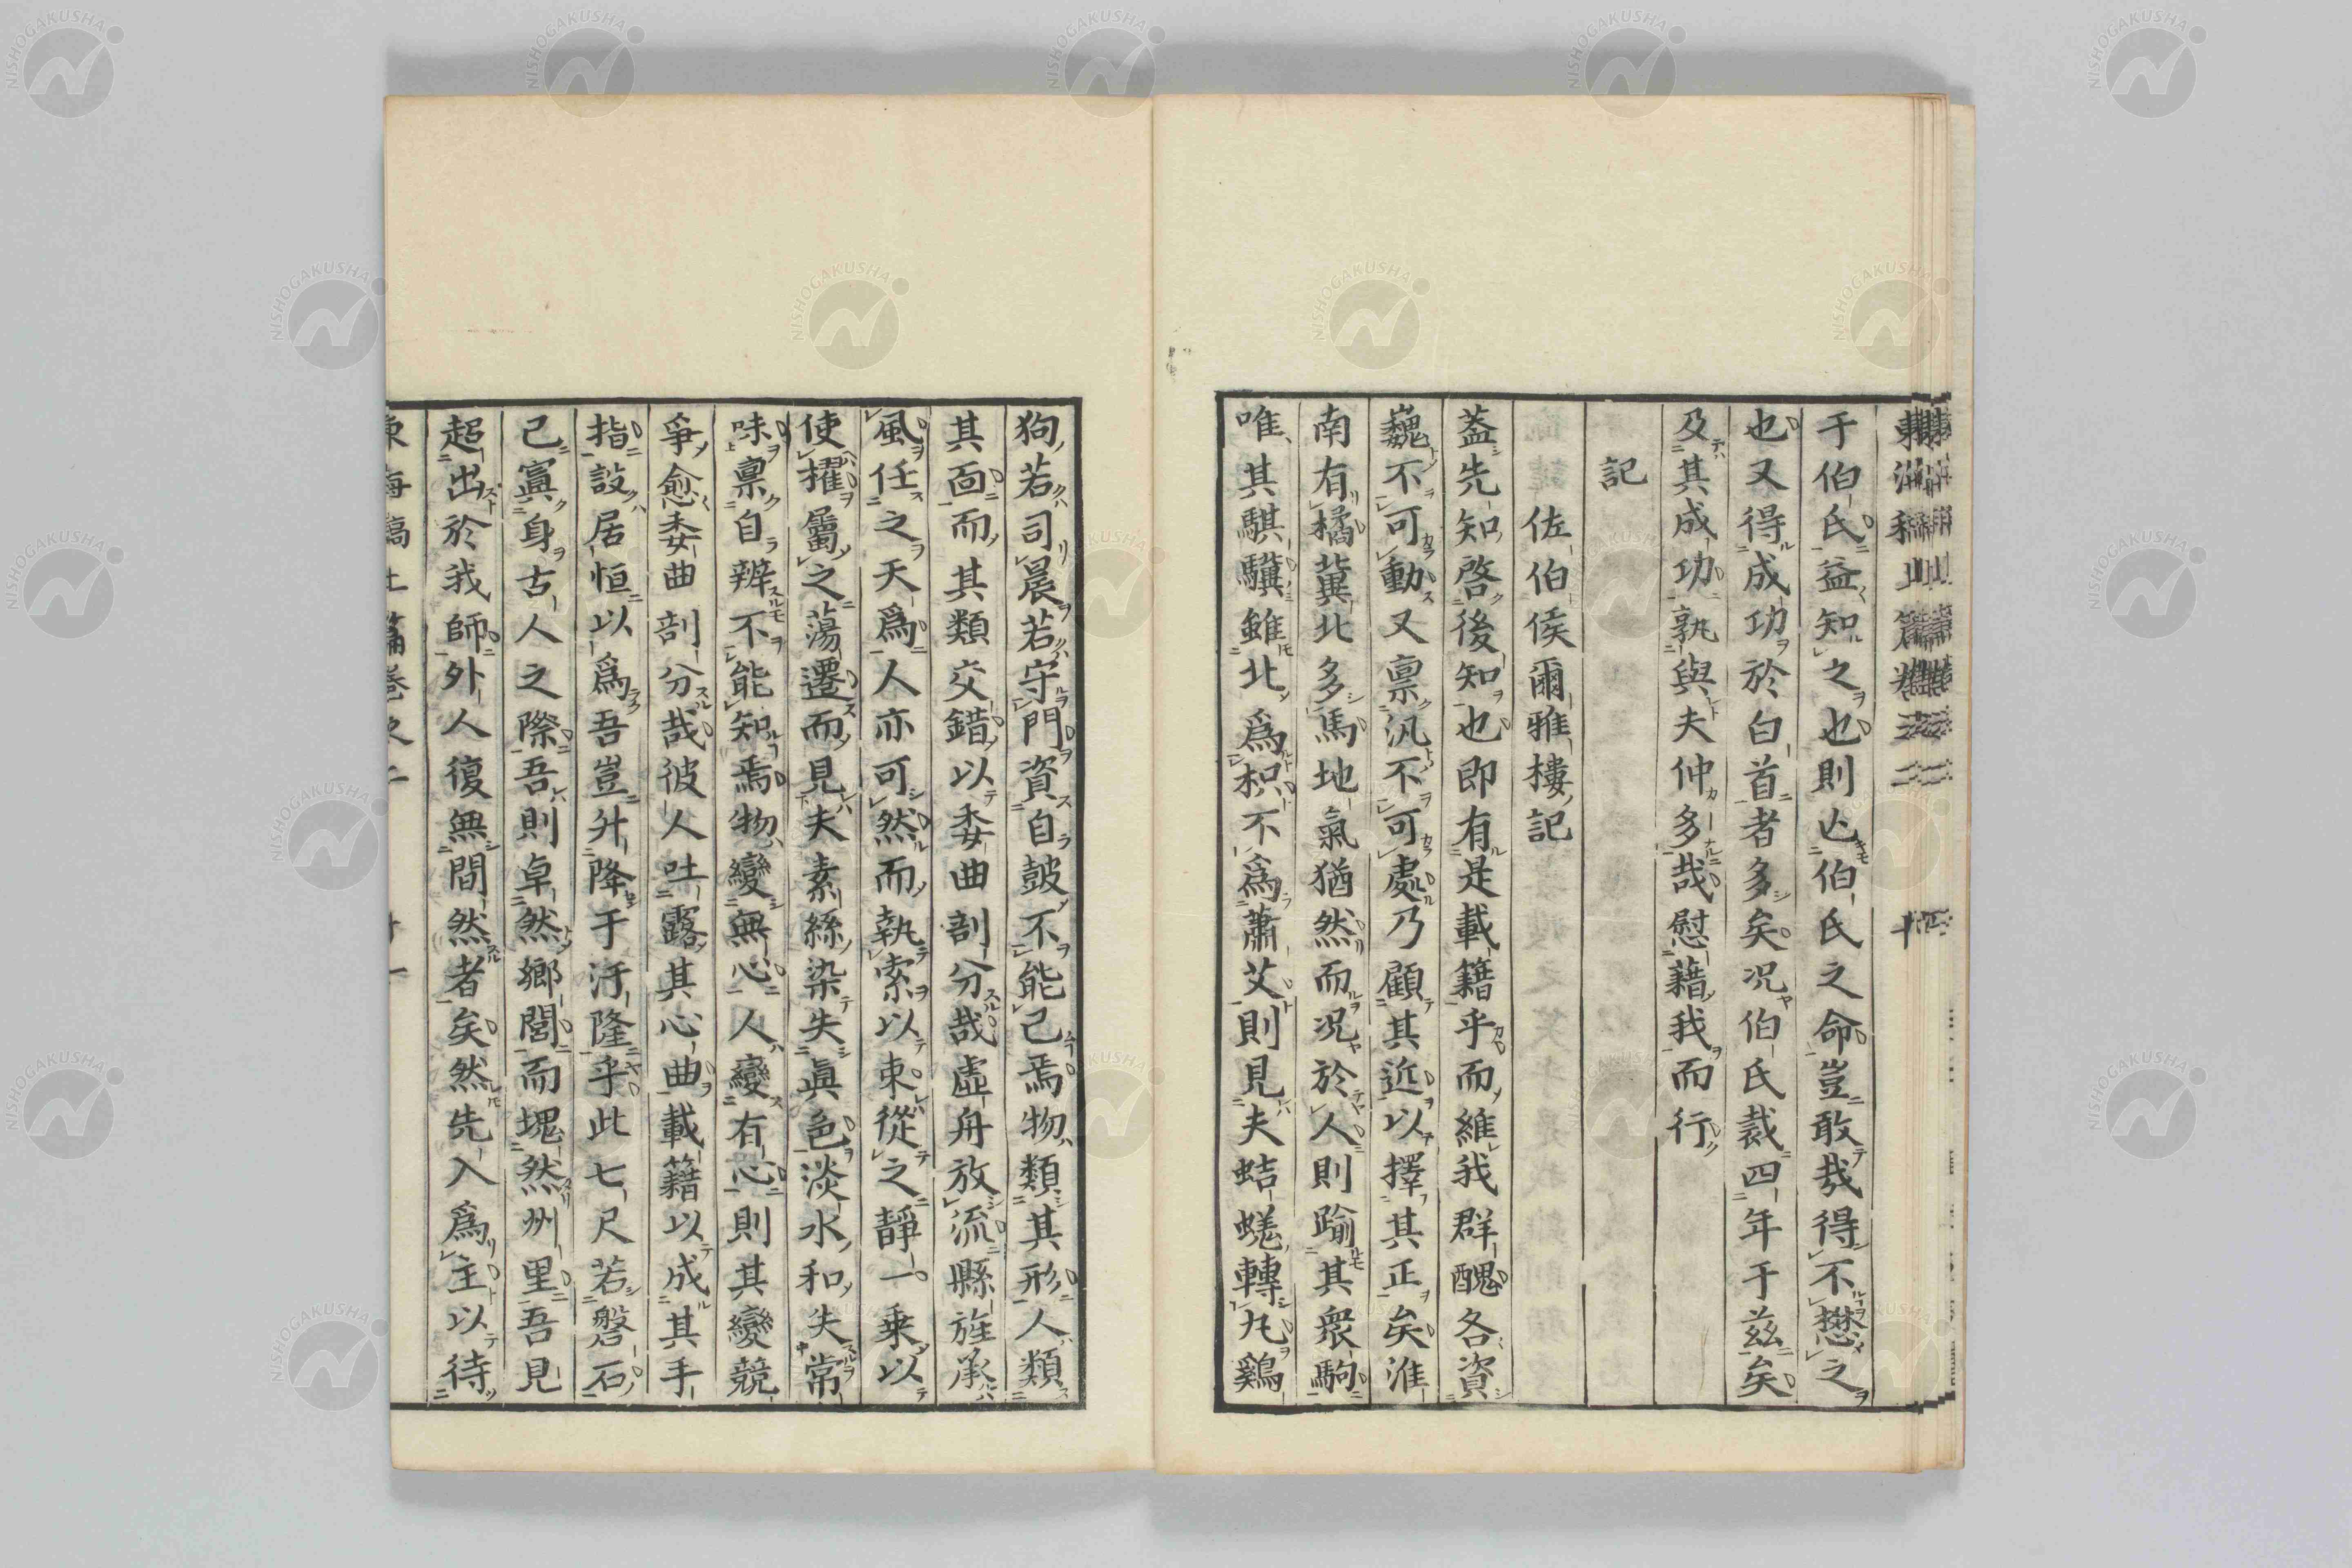 于伯氏益知之也則亾伯氏之命豈敢哉得不懋之
也又得成功於白首者多矣况伯氏裁四年于茲矣
及其成功孰與夫仲多哉慰藉我而行
記
佐伯侯爾雅樓記
蓋先知啓後知也即有是載籍乎而維我群醜各資
巍不可動又禀汎不可處乃顧其近以擇其正矣淮
南有橘冀北多馬地氣猶然而况於人則踰其衆駒
唯其騏驥雖北爲枳不爲蕭艾則見夫蛣蜣轉丸鷄
狗若司晨若守門資自皷不能已焉物類其形人類
其面而其類交錯以委曲剖分哉虛舟放流縣旌承
風任之天爲人亦可然而執索以束從之靜一乗以
使擢屬之蕩遷而見夫素絲染失眞色淡水和失常
味禀自辨不能知焉物變無心人變有心則其變競
爭愈委曲剖分哉彼人吐露其心曲載籍以成其手
指設居恒以爲吾豈升降于汙隆乎此七尺若磐石
己寘身古人之際吾則卓然鄉閭而塊然州里吾見
超出於我師外人復無間然者矣然先入爲主以待